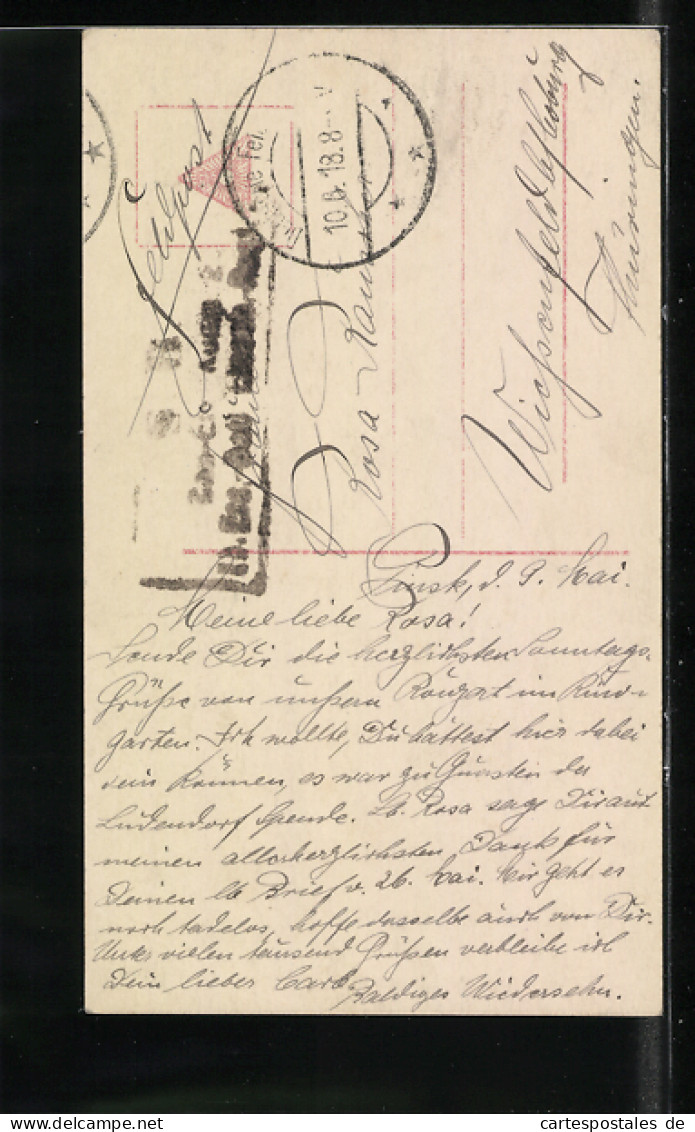 Feldpost
10.6.18.8-
Rosa
Wießenfeld b/Coburg
Thüringen.
Pinsk, d. 9. Mai.
Meine liebe Rosa!
Sende Dir die herzlichsten Sonntags-
Grüße von unserm Konzert im
garten. Ich wollte, Du hättest hier dabei
sein können, es war zu Gunsten der
Ludendorf Spende. Lb. Rosa sage Dir auf
meinen allerherzlichsten Dank für
Deinen lb Brief v. 26. Mai. Mir geht es
noch tadelos, hoffe dasselbe auch von Dir.
Unter vielen tausend Grüßen verbleibe ich
Dein lieber Carl
Baldiges Wiedersehn.
© cartespostales.de
cartespostales de